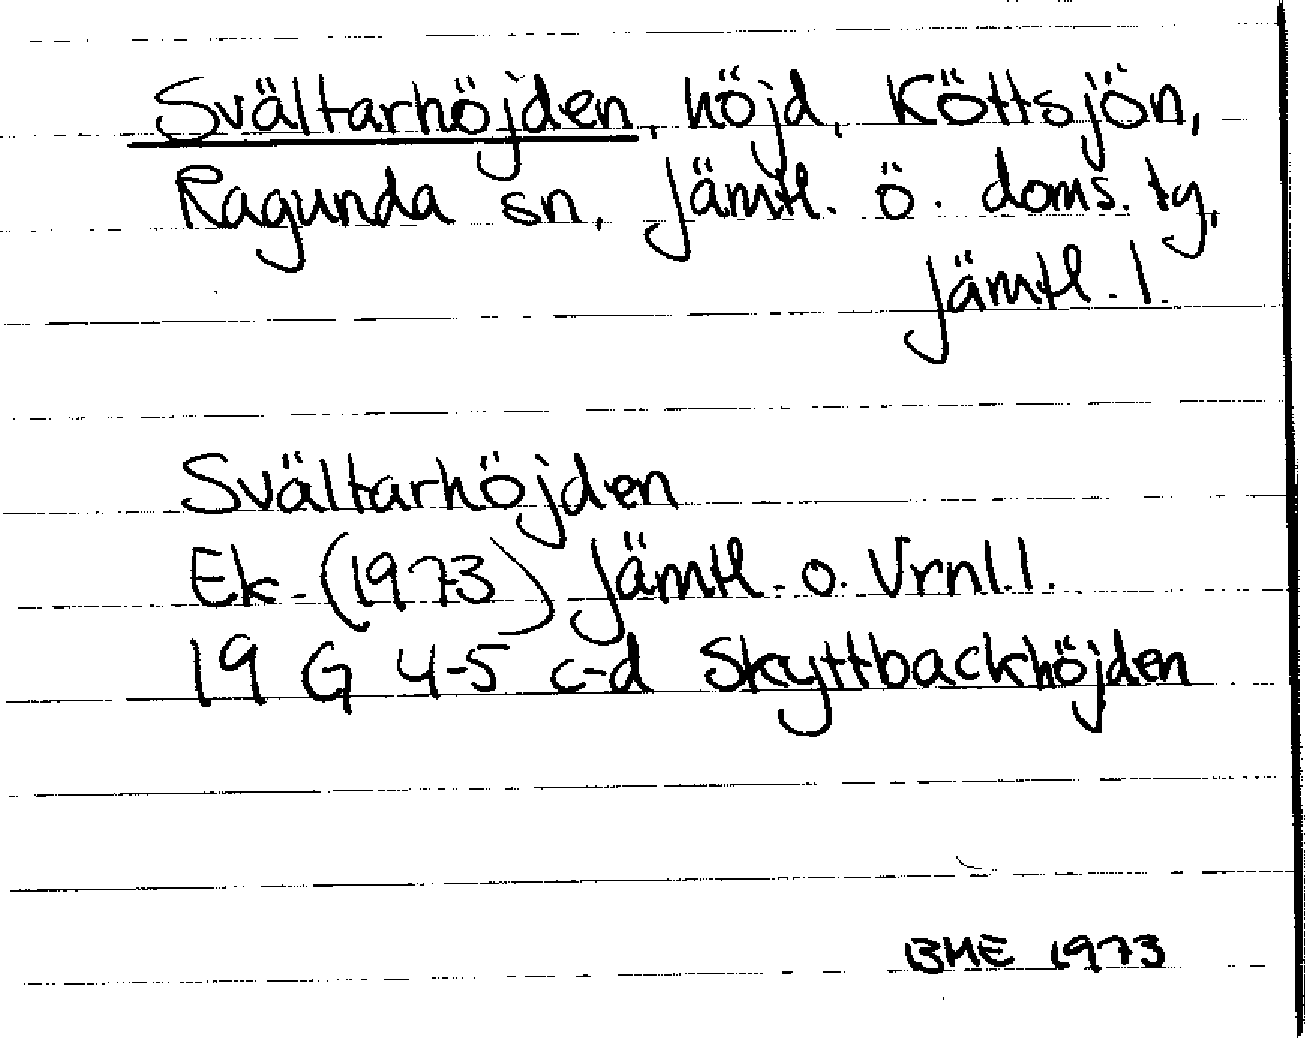 Svältarhöjden, höjd, Köttsjön,
Ragunda sn, Jämtl. ö. doms. tg,
Jämtl. l.
Svältarhöjden
Ek. (1973) Jämtl. o. Vrnl. l.
19 G 4-5 c-d Skyttbackhöjden
BME 1973